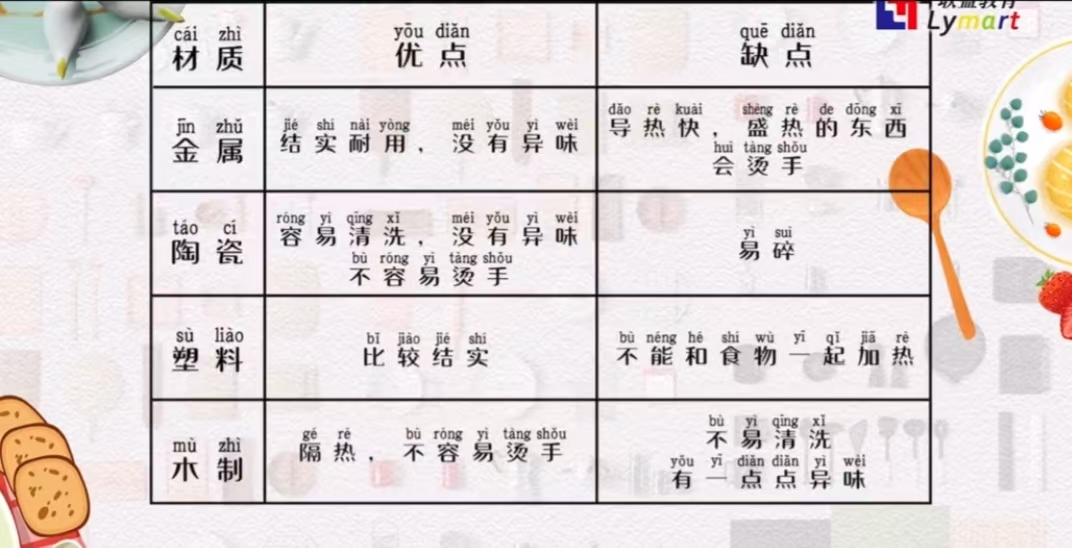 联盟教育
Lymart
cái zhì
材质
yōu diǎn
优点
quē diǎn
缺点
jīn zhǔ
金属
jié shí nài yòng, méi yǒu yì wèi
结实耐用，没有异味
dǎo rè kuài, shèng rè de dōng xī
导热快，盛热的东西
huì tàng shǒu
会烫手
táo cí
陶瓷
róng yì qīng xǐ, méi yǒu yì wèi
容易清洗，没有异味
bù róng yì tàng shǒu
不容易烫手
yì suì
易碎
sù liào
塑料
bǐ jiào jié shí
比较结实
bù néng hé shí wù yī qǐ jiā rè
不能和食物一起加热
mù zhì
木制
gé rè, bù róng yì tàng shǒu
隔热，不容易烫手
bù yì qīng xǐ
不易清洗
yǒu yī diǎn diǎn yì wèi
有一点点异味